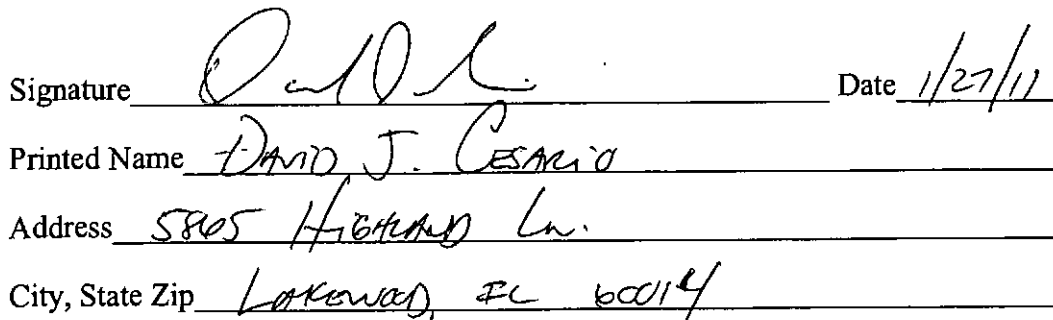 Signature Date 1/27/11
Printed Name DAVID J. CESARIO
Address 5865 HIGHLAND Ln.
City, State Zip LAKEWOOD, IL 60014